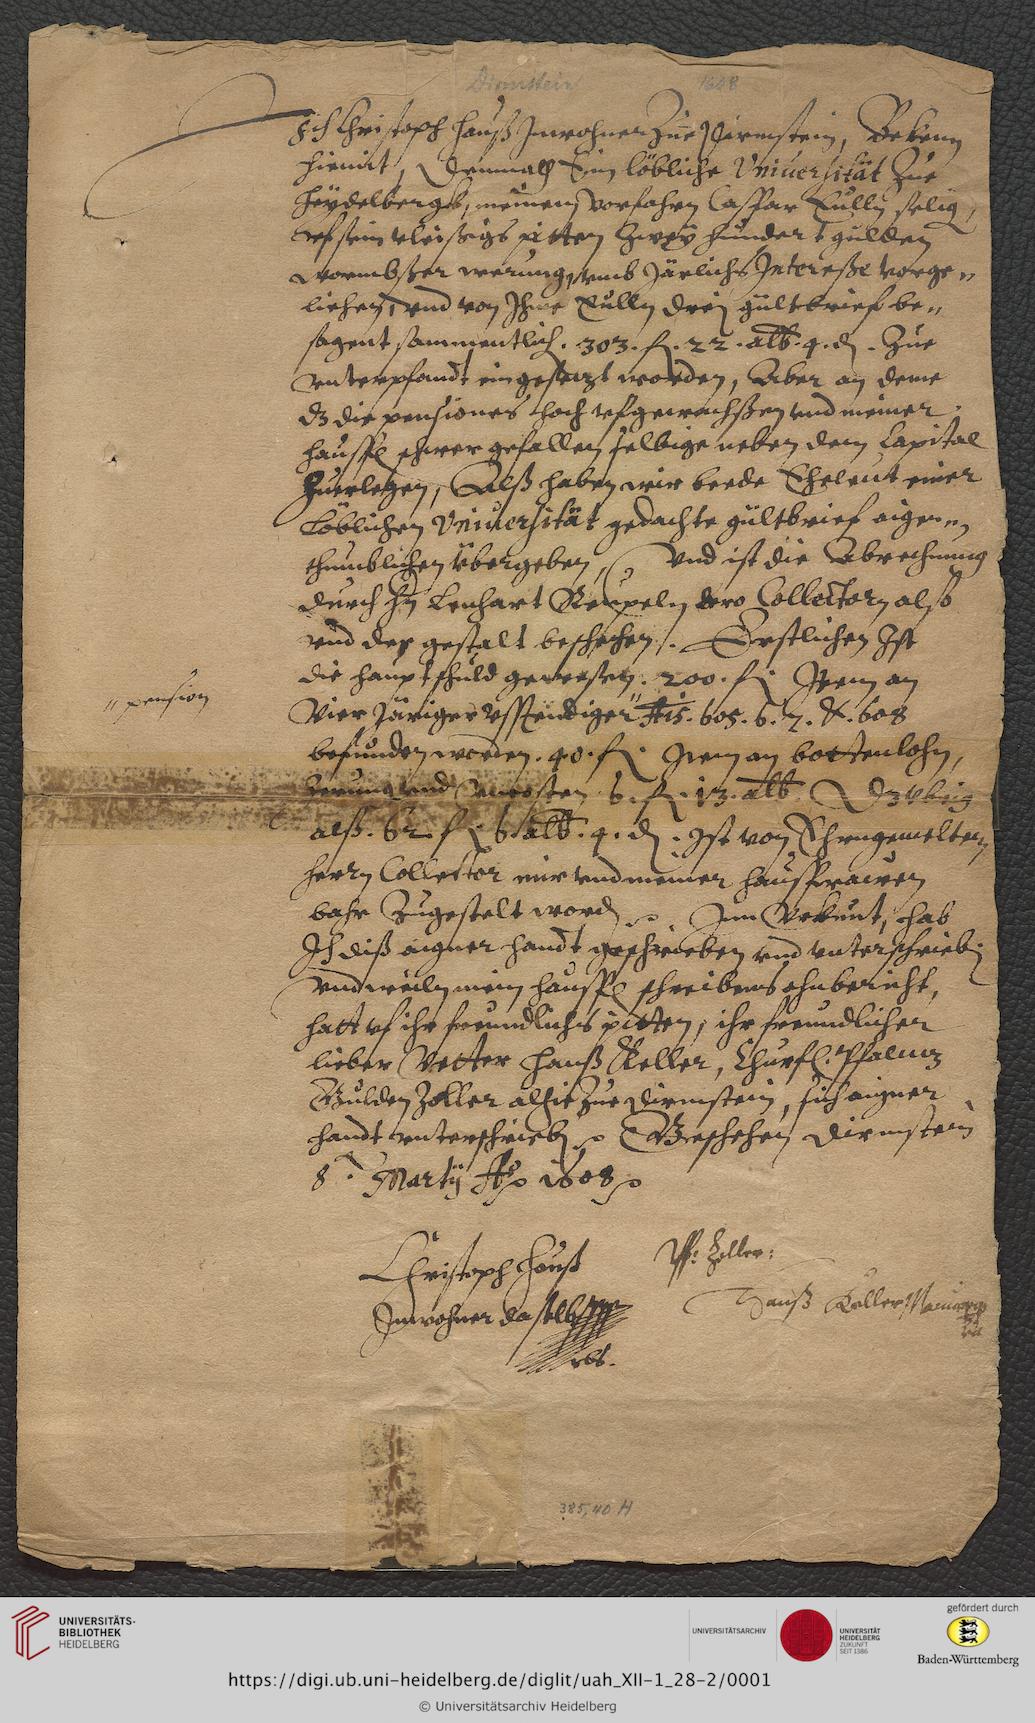 Dirmstein 1608
Ich Christoph Hauß Inwohner Zue Dirmstein, Bekenn
hiemit, Demnach Ein löbliche Vniuersität Zue
Heydelbergk, meinem vorfahrn Caspar Lully selig,
vf sein vleissigs pitten Zwey hundert gulden
wormbßer werung, vmb Järlichs Interesse vorge-
liehen, vnd von Ihme Lully drei gültbrief be-
sagent sammentlich. 303. fl. 22. alb. 4. d. Zue
vnterpfandt eingesetzt worden, Aber an deme
dz die pensiones hoch vfgewachßen vnd meiner
haussfr schwer gefallen selbige neben dem Capital
Zuerlegen, Alß haben wir beede Eheleut einer
Löblichen Vniuersität gedachte gültbrief aigen-
thumblichen übergeben, Vnd ist die Abrechnung
durch Hn Lenhart dero Collectorn also
vnd der gestalt beschehen. Erstlichen Ist
die hauptschuld gewesen. 200. fl. Item an
" pension
Vier Järiger vsstendiger " Ais. 605. 6. 7. & 608
befunden worden. 40. fl. Item an bottenlohn,
Zerung vnd vncosten 6. fl. 13. alb. Dz vbrig
alß. 62. fl. 6. alb. 4. d. Ist von Ehrngemeltem
herrn Collector mir vnd meiner haussfrawen
bahr Zugestelt word. Inn Vrkunt, hab
Ich diß aigner handt geschrieben vnd vnterschrieb
vnd weiln mein haussfr schreibens ohnbericht,
hatt vf ihr freundlichs pitten, ihr freundlicher
lieber Vetter Hanß Keller, Churfl. Pfaltz
Gulden Zoller alhie Zue Dirmstein, sich aigner
handt vnterschrieb. Geschehen Dirmstein
8. Martij Ao 1608
Christoph Hauß
Inwohner daselbst
Pf. Zoller:
Hanß Keller
385,40 H
UNIVERSITÄTS-
BIBLIOTHEK
HEIDELBERG
UNIVERSITÄTSARCHIV
UNIVERSITÄT
HEIDELBERG
ZUKUNFT
SEIT 1386
gefördert durch
Baden-Württemberg
https://digi.ub.uni-heidelberg.de/diglit/uah_XII-1_28-2/0001
© Universitätsarchiv Heidelberg